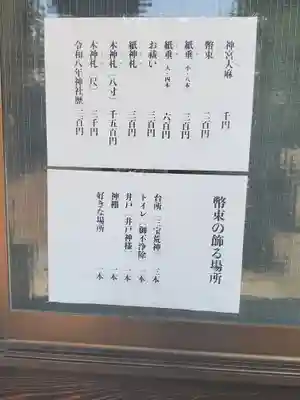 神宮大麻 千円
幣束 二百円
紙垂 小・八本 三百円
紙垂 大・四本 六百円
お祓い 三百円
紙神札 三百円
木神札（八寸） 千五百円
木神札（尺） 二千円
令和八年神社暦 二百円
幣束の飾る場所
台所（三宝荒神） 三本
トイレ（御不浄除） 一本
井戸（井戸神様） 一本
神棚 一本
好きな場所 一本